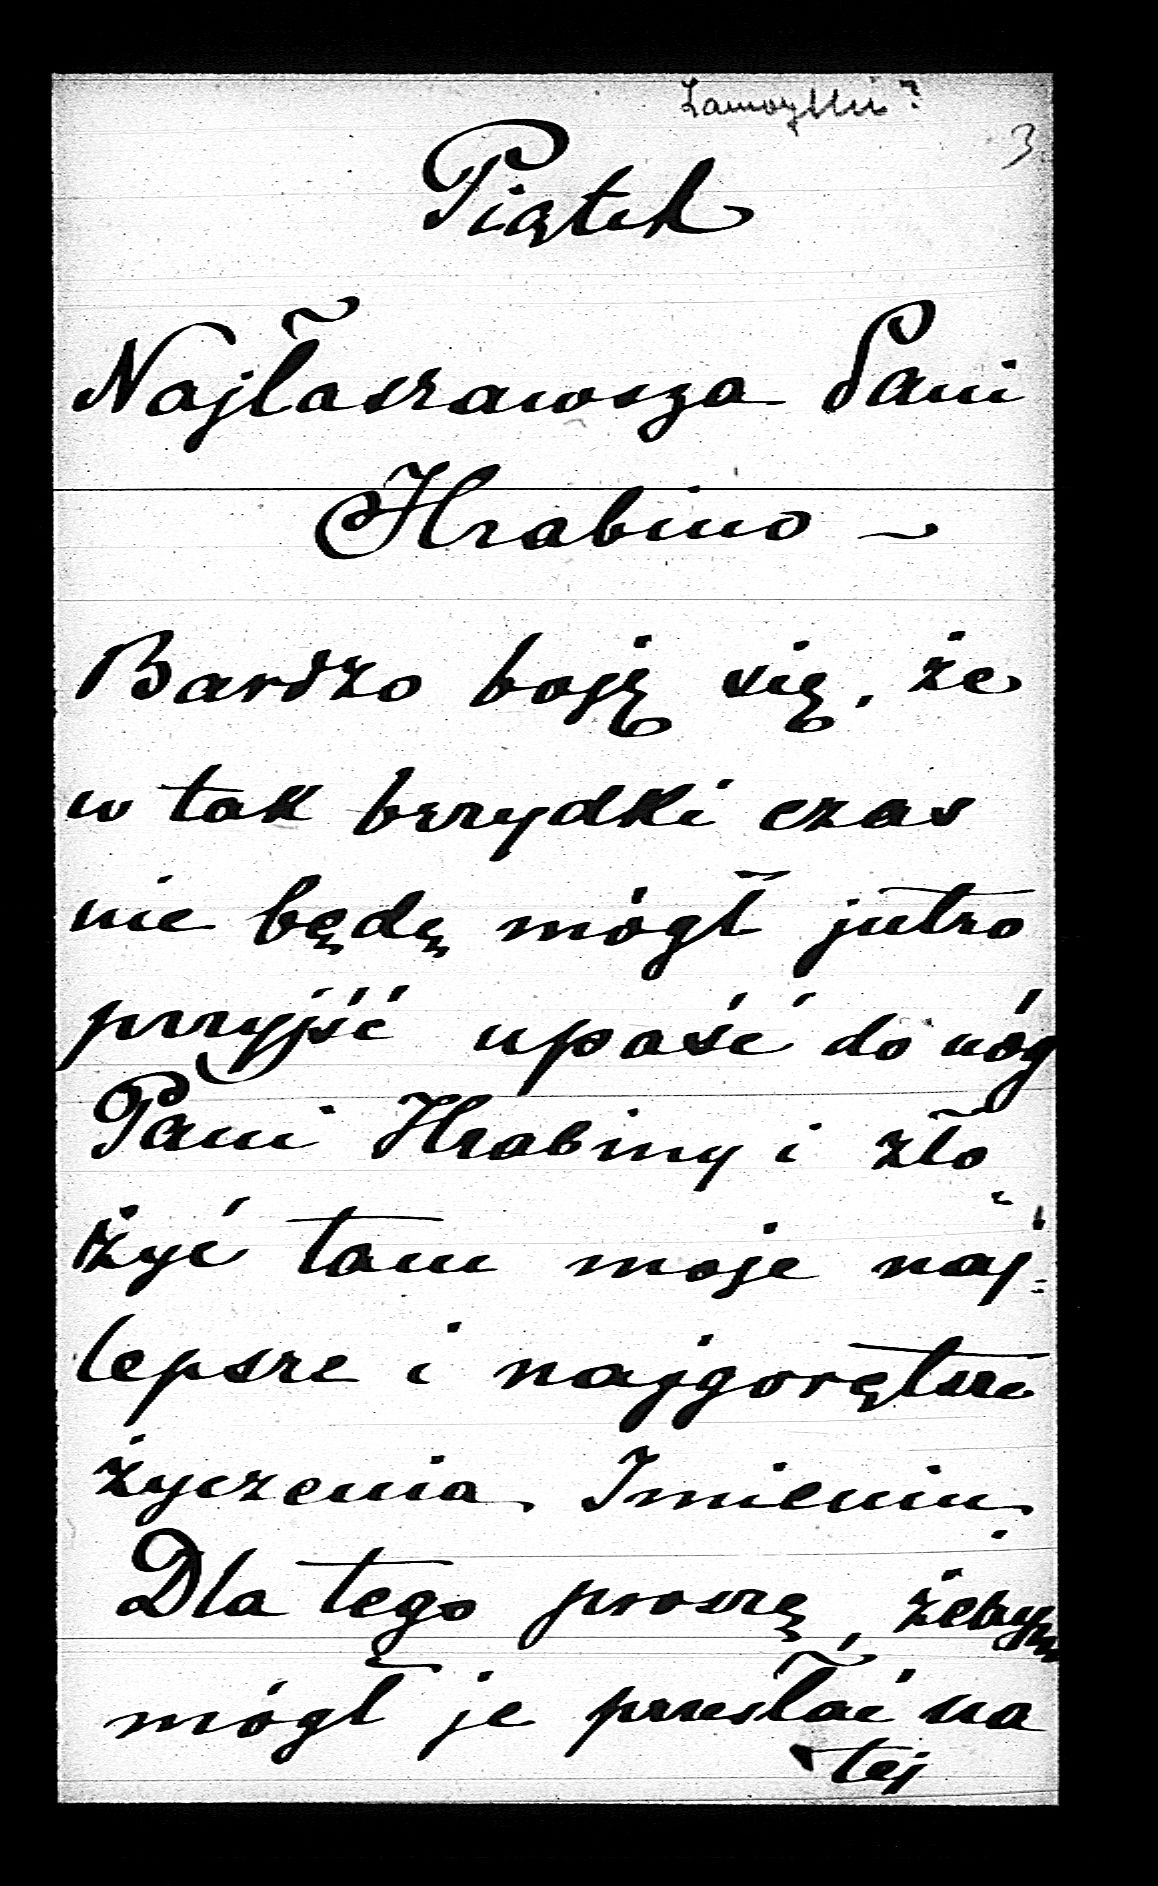 Zamoyski?
3
Piątek
Najłaskawsza Pani
Hrabino –
Bardzo boję się, że
w tak brzydki czas
nie będę mógł jutro
przyjść upaść do nóg
Pani Hrabiny i zło
żyć tam moje naj-
lepsze i najgorętsze
życzenia Imienin.
Dla tego proszę, żebym
mógł je przesłać na
tej